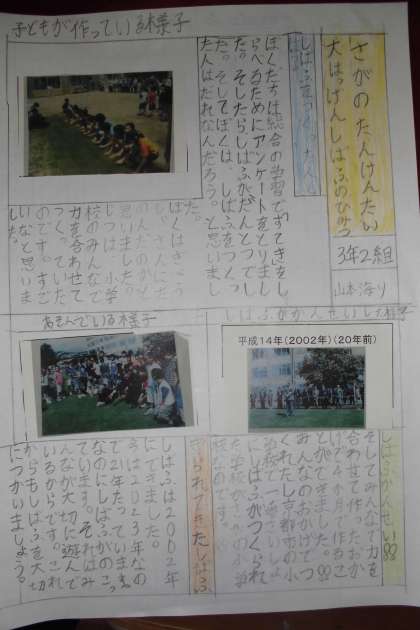 さがのたんけんたい
大はっけんしばふのひみつ
3年2組
子どもが作っている様子
ぼくたちは総合の学習で
らべるためにアンケートをとりまし
た。そしたらしばふがだんとつでし
た。そしてぼくは、しばふをつくっ
た人はだれなんだろう。と思いまし
た。
思いました。
じつは、小学
校のみんなで
力を合わせて
つくっていた
のです。すご
いなと思いま
した。
しばふがかんせいした様子
平成14年(2002年)(20年前)
しばふかんせい!!
そしてみんなで力を
合わせて作ったおか
げで
とができました。!!
みんなのおかげでつ
くれたし京都市の小
学校で一番さいしょ
にしばふがつくられ
た学校がさがの小学
校なのです。
あそんでいる様子
守られてきたしばふ
しばふは2002年
にできました。
今は2023年なの
で21年たっています。
なのにしばふがのこっ
ています。それはみ
んなが大切に遊んで
いるからです。これ
からもしばふを大切
につかいましょう。